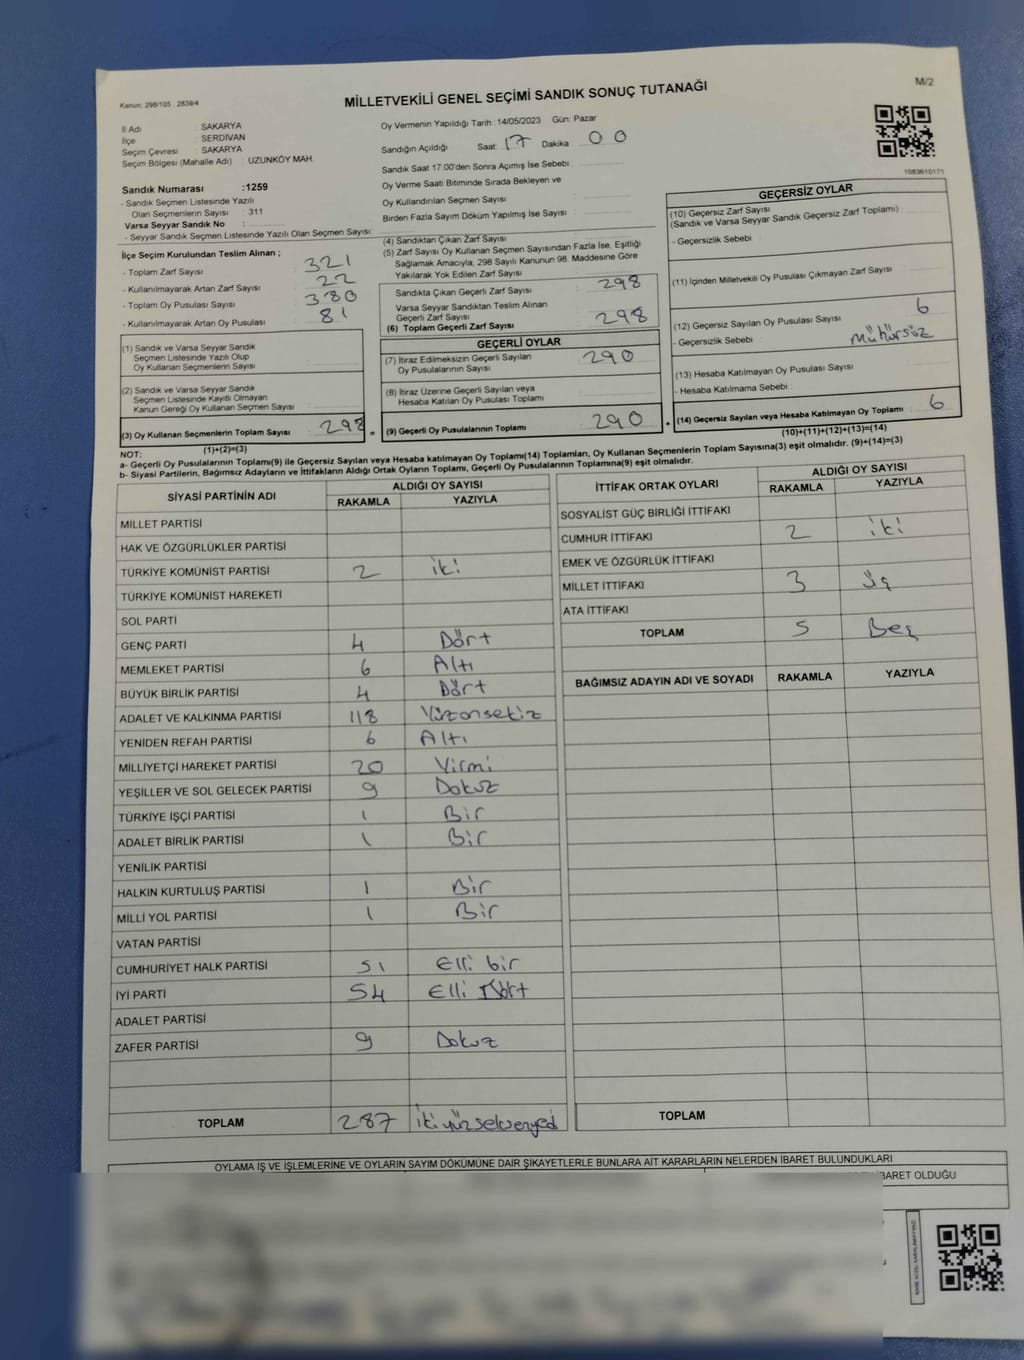 Kanun: 298/105 , 2839/4
MİLLETVEKİLİ GENEL SEÇİMİ SANDIK SONUÇ TUTANAĞI
M/2
İl Adı : SAKARYA
İlçe : SERDİVAN
Seçim Çevresi : SAKARYA
Seçim Bölgesi (Mahalle Adı) : UZUNKÖY MAH.
Sandık Numarası :1259
- Sandık Seçmen Listesinde Yazılı
Olan Seçmenlerin Sayısı : 311
Varsa Seyyar Sandık No :
- Seyyar Sandık Seçmen Listesinde Yazılı Olan Seçmen Sayısı:
Oy Vermenin Yapıldığı Tarih :14/05/2023 Gün: Pazar
Sandığın Açıldığı Saat 17 Dakika 00
Sandık Saat 17:00'den Sonra Açılmış İse Sebebi :
Oy Verme Saati Bitiminde Sırada Bekleyen ve
Oy Kullandırılan Seçmen Sayısı :
Birden Fazla Sayım Döküm Yapılmış İse Sayısı :
1083610171
İlçe Seçim Kurulundan Teslim Alınan ;
- Toplam Zarf Sayısı : 321
- Kullanılmayarak Artan Zarf Sayısı : 22
- Toplam Oy Pusulası Sayısı : 380
- Kullanılmayarak Artan Oy Pusulası : 81
(1) Sandık ve Varsa Seyyar Sandık
Seçmen Listesinde Yazılı Olup
Oy Kullanan Seçmenlerin Sayısı :
(2) Sandık ve Varsa Seyyar Sandık
Seçmen Listesinde Kayıtlı Olmayan
Kanun Gereği Oy Kullanan Seçmen Sayısı :
(3) Oy Kullanan Seçmenlerin Toplam Sayısı : 298
(1)+(2)=(3)
(4) Sandıktan Çıkan Zarf Sayısı :
(5) Zarf Sayısı Oy Kullanan Seçmen Sayısından Fazla İse, Eşitliği
Sağlamak Amacıyla; 298 Sayılı Kanunun 98. Maddesine Göre
Yakılarak Yok Edilen Zarf Sayısı :
Sandıkta Çıkan Geçerli Zarf Sayısı : 298
Varsa Seyyar Sandıktan Teslim Alınan
Geçerli Zarf Sayısı :
(6) Toplam Geçerli Zarf Sayısı : 298
GEÇERLİ OYLAR
(7) İtiraz Edilmeksizin Geçerli Sayılan
Oy Pusulalarının Sayısı : 290
(8) İtiraz Üzerine Geçerli Sayılan veya
Hesaba Katılan Oy Pusulası Toplamı :
(9) Geçerli Oy Pusulalarının Toplamı : 290
GEÇERSİZ OYLAR
(10) Geçersiz Zarf Sayısı :
(Sandık ve Varsa Seyyar Sandık Geçersiz Zarf Toplamı)
- Geçersizlik Sebebi :
(11) İçinden Milletvekili Oy Pusulası Çıkmayan Zarf Sayısı :
(12) Geçersiz Sayılan Oy Pusulası Sayısı : 6
- Geçersizlik Sebebi : Mühürsüz
(13) Hesaba Katılmayan Oy Pusulası Sayısı :
- Hesaba Katılmama Sebebi :
(14) Geçersiz Sayılan veya Hesaba Katılmayan Oy Toplamı : 6
(10)+(11)+(12)+(13)=(14)
NOT:
a- Geçerli Oy Pusulalarının Toplamı(9) ile Geçersiz Sayılan veya Hesaba katılmayan Oy Toplamı(14) Toplamları, Oy Kullanan Seçmenlerin Toplam Sayısına(3) eşit olmalıdır. (9)+(14)=(3)
b- Siyasi Partilerin, Bağımsız Adayların ve İttifakların Aldığı Ortak Oyların Toplamı, Geçerli Oy Pusulalarının Toplamına(9) eşit olmalıdır.
SİYASİ PARTİNİN ADI ALDIĞI OY SAYISI
RAKAMLA YAZIYLA
MİLLET PARTİSİ
HAK VE ÖZGÜRLÜKLER PARTİSİ
TÜRKİYE KOMÜNİST PARTİSİ 2 iki
TÜRKİYE KOMÜNİST HAREKETİ
SOL PARTİ
GENÇ PARTİ 4 Dört
MEMLEKET PARTİSİ 6 Altı
BÜYÜK BİRLİK PARTİSİ 4 Dört
ADALET VE KALKINMA PARTİSİ 118 Yüzonsekiz
YENİDEN REFAH PARTİSİ 6 Altı
MİLLİYETÇİ HAREKET PARTİSİ 20 Yirmi
YEŞİLLER VE SOL GELECEK PARTİSİ 9 Dokuz
TÜRKİYE İŞÇİ PARTİSİ 1 Bir
ADALET BİRLİK PARTİSİ 1 Bir
YENİLİK PARTİSİ
HALKIN KURTULUŞ PARTİSİ 1 Bir
MİLLİ YOL PARTİSİ 1 Bir
VATAN PARTİSİ
CUMHURİYET HALK PARTİSİ 51 Elli bir
İYİ PARTİ 54 Elli Dört
ADALET PARTİSİ
ZAFER PARTİSİ 9 Dokuz
TOPLAM 287 ikiyüzseksenyedi
İTTİFAK ORTAK OYLARI ALDIĞI OY SAYISI
RAKAMLA YAZIYLA
SOSYALİST GÜÇ BİRLİĞİ İTTİFAKI
CUMHUR İTTİFAKI 2 iki
EMEK VE ÖZGÜRLÜK İTTİFAKI
MİLLET İTTİFAKI 3 üç
ATA İTTİFAKI
TOPLAM 5 Beş
BAĞIMSIZ ADAYIN ADI VE SOYADI RAKAMLA YAZIYLA
TOPLAM
OYLAMA İŞ VE İŞLEMLERİNE VE OYLARIN SAYIM DÖKÜMÜNE DAİR ŞİKAYETLERLE BUNLARA AİT KARARLARIN NELERDEN İBARET BULUNDUKLARI
İBARET OLDUĞU